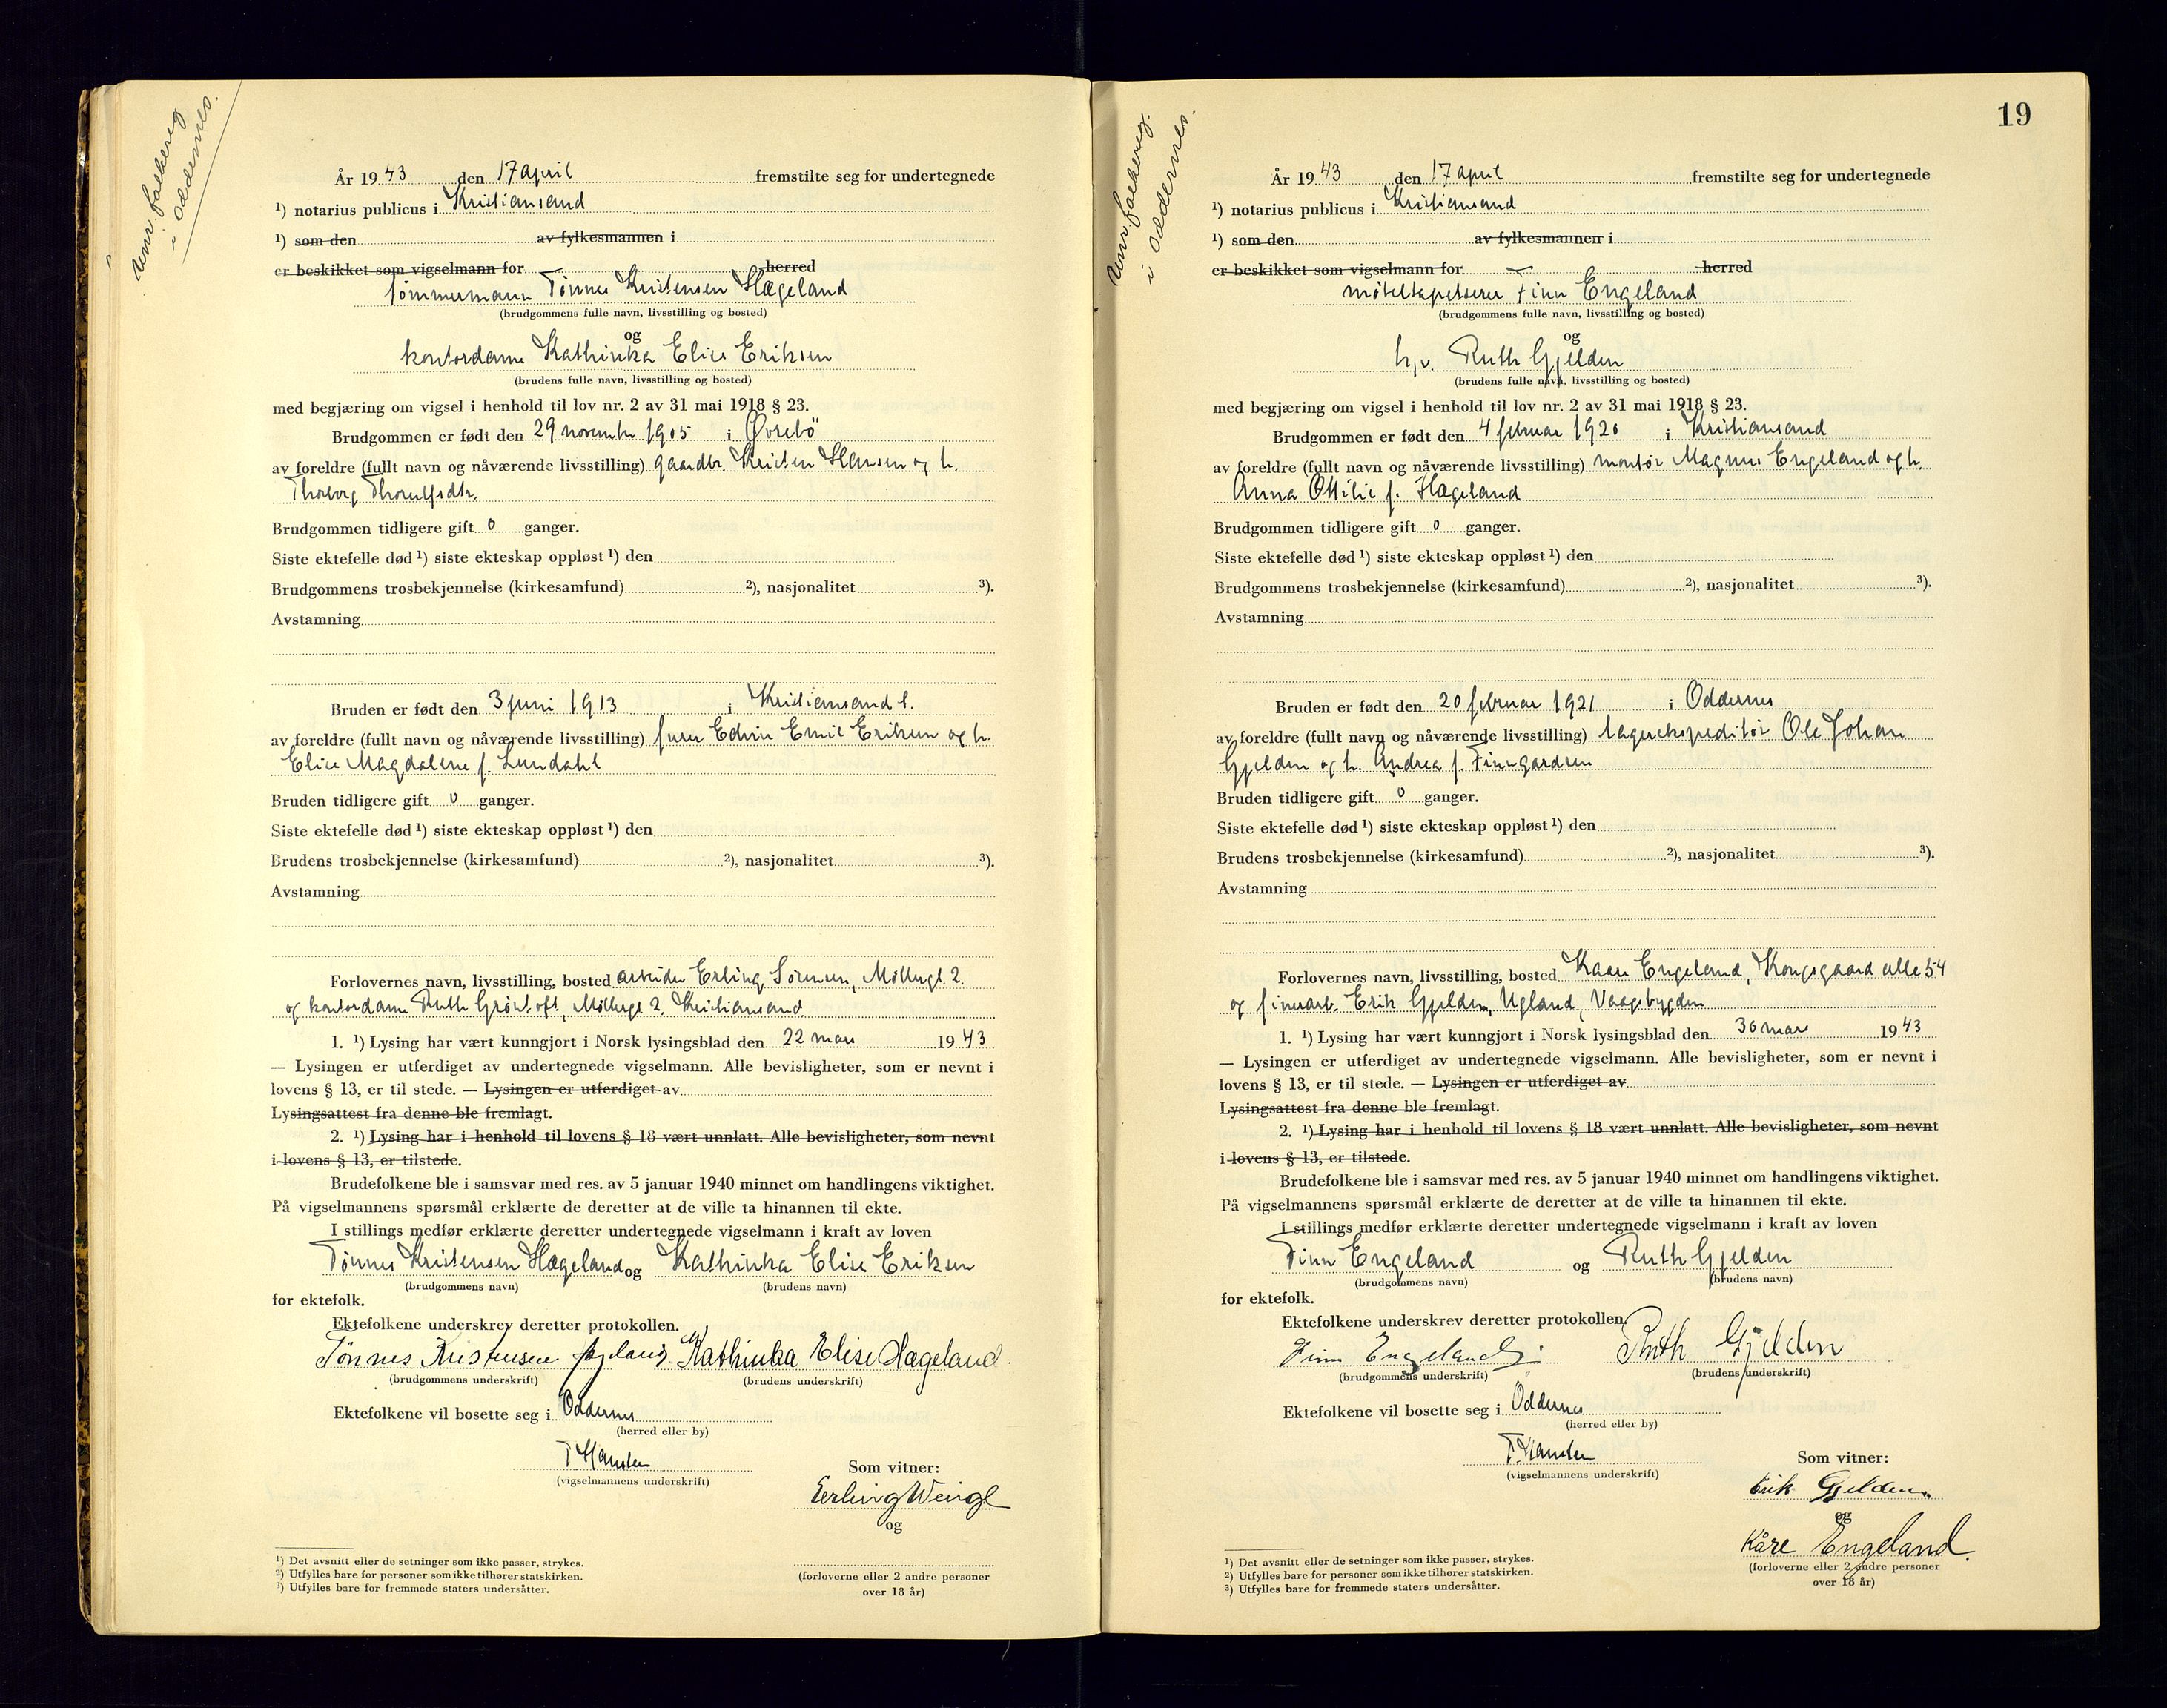 folkereg
i Oddernes.
År 1943 den 17 april fremstilte seg for undertegnede
¹) notarius publicus i Kristiansand
¹) som den av fylkesmannen i
er beskikket som vigselmann for herred
tømmermann Tønnes Kristensen Hægeland
(brudgommens fulle navn, livsstilling og bosted)
og
kontordame Kathinka Elise Eriksen
(brudens fulle navn, livsstilling og bosted)
med begjæring om vigsel i henhold til lov nr. 2 av 31 mai 1918 § 23.
Brudgommen er født den 29 november 1905 i Øvrebö
av foreldre (fullt navn og nåværende livsstilling) gaardbr. Kristen Hansen og h.
Thorborg Thorulfsdtr.
Brudgommen tidligere gift 0 ganger.
Siste ektefelle død ¹) siste ekteskap oppløst ¹) den
Brudgommens trosbekjennelse (kirkesamfund) ²), nasjonalitet ³).
Avstamning
Bruden er født den 3 juni 1913 i Kristiansand S.
av foreldre (fullt navn og nåværende livsstilling) furer Edvin Emil Eriksen og h.
Elise Magdalene f. Lundahl
Bruden tidligere gift 0 ganger.
Siste ektefelle død ¹) siste ekteskap oppløst ¹) den
Brudens trosbekjennelse (kirkesamfund) ²), nasjonalitet ³).
Avstamning
Forlovernes navn, livsstilling, bosted arbeider Erling Sørensen, Møllergt. 2.
og kontordame Ruth Grøntoft, Møllergt 2, Kristiansand
1. ¹) Lysing har vært kunngjort i Norsk lysingsblad den 22 mars 1943
— Lysingen er utferdiget av undertegnede vigselmann. Alle bevisligheter, som er nevnt i
lovens § 13, er til stede. — Lysingen er utferdiget av
Lysingsattest fra denne ble fremlagt.
2. ¹) Lysing har i henhold til lovens § 18 vært unnlatt. Alle bevisligheter, som nevnt
i lovens § 13, er tilstede.
Brudefolkene ble i samsvar med res. av 5 januar 1940 minnet om handlingens viktighet.
På vigselmannens spørsmål erklærte de deretter at de ville ta hinannen til ekte.
I stillings medfør erklærte deretter undertegnede vigselmann i kraft av loven
Tønnes Kristensen Hægeland og Kathinka Elise Eriksen
(brudgommens navn) (brudens navn)
for ektefolk.
Ektefolkene underskrev deretter protokollen.
Tönnes Kristensen Hægeland. Kathinka Elise Hægeland.
(brudgommens underskrift) (brudens underskrift)
Ektefolkene vil bosette seg i Oddernes
(herred eller by)
(vigselmannens underskrift)
Som vitner:
Erling
og
(forloverne eller 2 andre personer
over 18 år)
¹) Det avsnitt eller de setninger som ikke passer, strykes.
²) Utfylles bare for personer som ikke tilhører statskirken.
³) Utfylles bare for fremmede staters undersåtter.
19
folkereg.
i Oddernes.
År 1943 den 17 april fremstilte seg for undertegnede
¹) notarius publicus i Kristiansand
¹) som den av fylkesmannen i
er beskikket som vigselmann for herred
møbeltapetserer Finn Engeland
(brudgommens fulle navn, livsstilling og bosted)
og
hjv. Ruth Gjelden
(brudens fulle navn, livsstilling og bosted)
med begjæring om vigsel i henhold til lov nr. 2 av 31 mai 1918 § 23.
Brudgommen er født den 4 februar 1920 i Kristiansand
av foreldre (fullt navn og nåværende livsstilling) montør Magnus Engeland og h.
Anna Ottilie f. Hægeland
Brudgommen tidligere gift 0 ganger.
Siste ektefelle død ¹) siste ekteskap oppløst ¹) den
Brudgommens trosbekjennelse (kirkesamfund) ²), nasjonalitet ³).
Avstamning
Bruden er født den 20 februar 1921 i Oddernes
av foreldre (fullt navn og nåværende livsstilling) lagerekspeditør Ole Johan
Gjelden og h. Andrea f. Finngardsen
Bruden tidligere gift 0 ganger.
Siste ektefelle død ¹) siste ekteskap oppløst ¹) den
Brudens trosbekjennelse (kirkesamfund) ²), nasjonalitet ³).
Avstamning
Forlovernes navn, livsstilling, bosted Kaare Engeland, Kongsgaard alle 54
og finerarb. Erik Gjelden, Ugland, Vaagsbygden
1. ¹) Lysing har vært kunngjort i Norsk lysingsblad den 30 mars 1943
— Lysingen er utferdiget av undertegnede vigselmann. Alle bevisligheter, som er nevnt i
lovens § 13, er til stede. — Lysingen er utferdiget av
Lysingsattest fra denne ble fremlagt.
2. ¹) Lysing har i henhold til lovens § 18 vært unnlatt. Alle bevisligheter, som nevnt
i lovens § 13, er tilstede.
Brudefolkene ble i samsvar med res. av 5 januar 1940 minnet om handlingens viktighet.
På vigselmannens spørsmål erklærte de deretter at de ville ta hinannen til ekte.
I stillings medfør erklærte deretter undertegnede vigselmann i kraft av loven
Finn Engeland og Ruth Gjelden
(brudgommens navn) (brudens navn)
for ektefolk.
Ektefolkene underskrev deretter protokollen.
Finn Engeland Ruth Gjelden
(brudgommens underskrift) (brudens underskrift)
Ektefolkene vil bosette seg i Oddernes
(herred eller by)
(vigselmannens underskrift)
Som vitner:
Erik Gjelden
og
Kåre Engeland.
(forloverne eller 2 andre personer
over 18 år)
¹) Det avsnitt eller de setninger som ikke passer, strykes.
²) Utfylles bare for personer som ikke tilhører statskirken.
³) Utfylles bare for fremmede staters undersåtter.